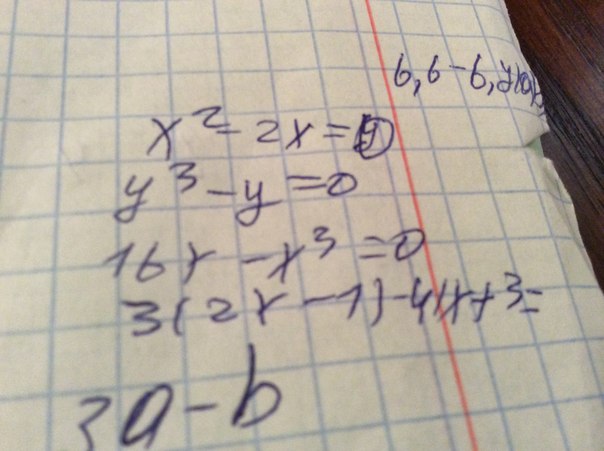 6,6-6,
x²-2x=0
y³-y=0
16x-x³=0
3(2x-1)-4(x+3=
3a-b